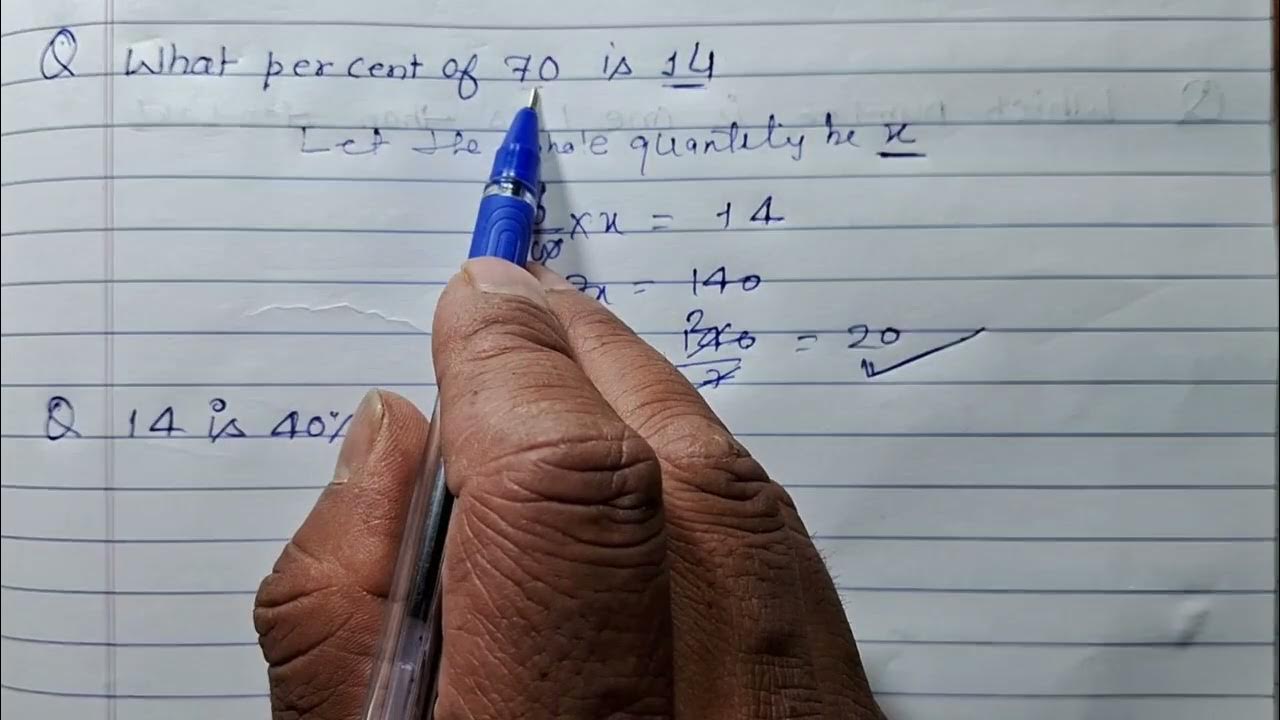 Q What percent of 70 is 14
Let the quantity be x
× x = 14
7x = 140
= 20
Q 14 is 40%